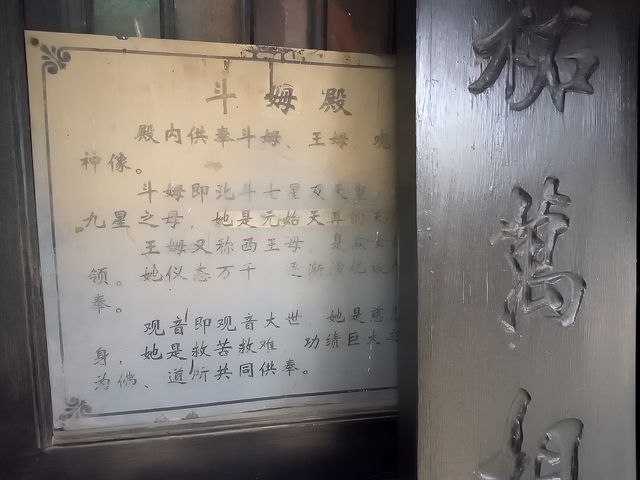 斗姆殿
殿内供奉斗姆、王姆、观
神像。
斗姆即北斗七星
九星之母，她是元始天尊的
王姆又称西王母，是众女
领。她仪态万千 逐渐演化
奉。
观音即观音大世 她是慈
身，她是救苦救难、功绩巨大之
为儒、道所共同供奉。
萬